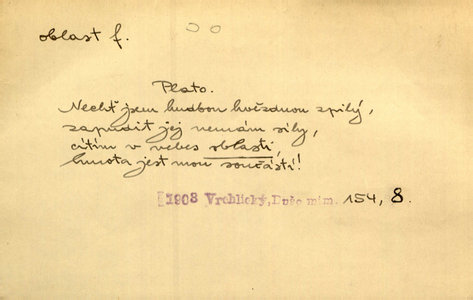 oblast f.
Plato.
Nechť jsem hudbou hvězdnou zpilý,
zapudit jej nemám síly,
cítím v nebes oblasti,
hmota jest mou součástí!
1903 Vrchlický, Duše mim. 154, 8.